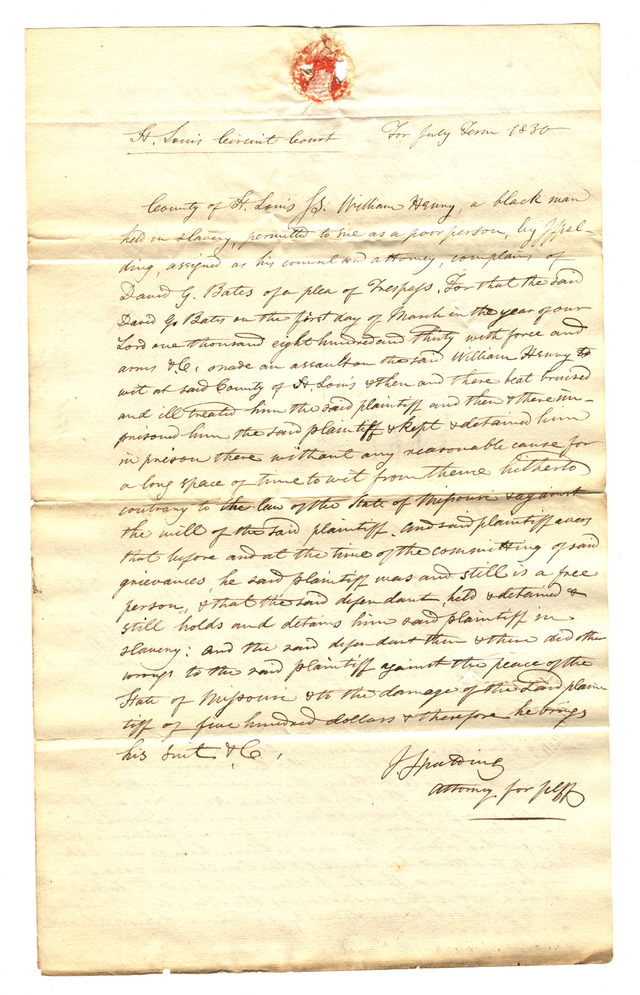 St. Louis Circuit Court For July Term 1830
County of St. Louis SS: William Henry, a black man
held in slavery, permitted to sue as a poor person, by J Spal-
ding, assigned as his counsel and attorney, complains of
David G. Bates of a plea of Trespass. For that the said
David G. Bates on the first day of March in the year of our
Lord one thousand eight hundred and thirty with force and
arms &C, made an assault on the said William Henry to
wit at said County of St. Louis & then and there beat bruised
and ill treated him the said plaintiff and then & there im-
prisoned him the said plaintiff & kept & detained him
in prison there without any reasonable cause for
a long space of time to wit from thence hitherto
contrary to the law of the State of Missouri & against
the will of the said plaintiff. And said plaintiff avers
that before and at the time of the committing of said
grievances he said plaintiff was and still is a free
person, & that the said defendant, held & detained &
still holds and detains him said plaintiff in
slavery: and the said defendant then & there did other
wrongs to the said plaintiff against the peace of the
State of Missouri & to the damage of the said plain
tiff of five hundred dollars & therefore he brings
his suit &C,
J Spalding
Attorney for plff